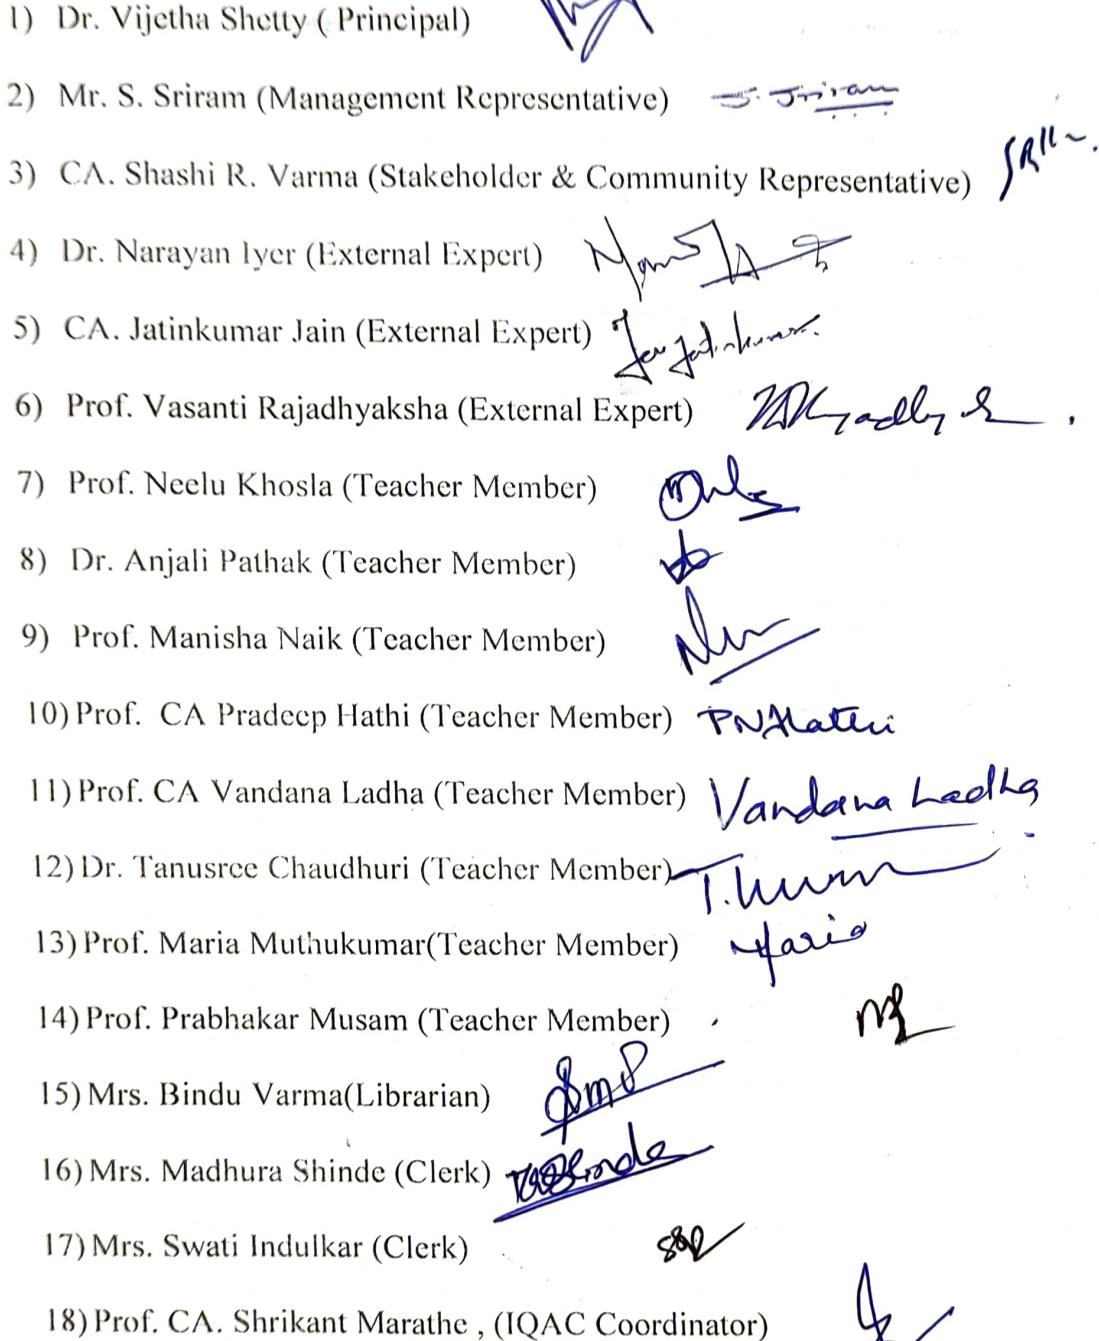 1) Dr. Vijetha Shetty ( Principal)
2) Mr. S. Sriram (Management Representative) S. Sriram
3) CA. Shashi R. Varma (Stakeholder & Community Representative)
4) Dr. Narayan Iyer (External Expert)
5) CA. Jatinkumar Jain (External Expert)
6) Prof. Vasanti Rajadhyaksha (External Expert)
7) Prof. Neelu Khosla (Teacher Member)
8) Dr. Anjali Pathak (Teacher Member)
9) Prof. Manisha Naik (Teacher Member)
10) Prof. CA Pradeep Hathi (Teacher Member) PNHathi
11) Prof. CA Vandana Ladha (Teacher Member) Vandana Ladha
12) Dr. Tanusree Chaudhuri (Teacher Member)
13) Prof. Maria Muthukumar(Teacher Member) Maria
14) Prof. Prabhakar Musam (Teacher Member)
15) Mrs. Bindu Varma(Librarian)
16) Mrs. Madhura Shinde (Clerk)
17) Mrs. Swati Indulkar (Clerk)
18) Prof. CA. Shrikant Marathe , (IQAC Coordinator)